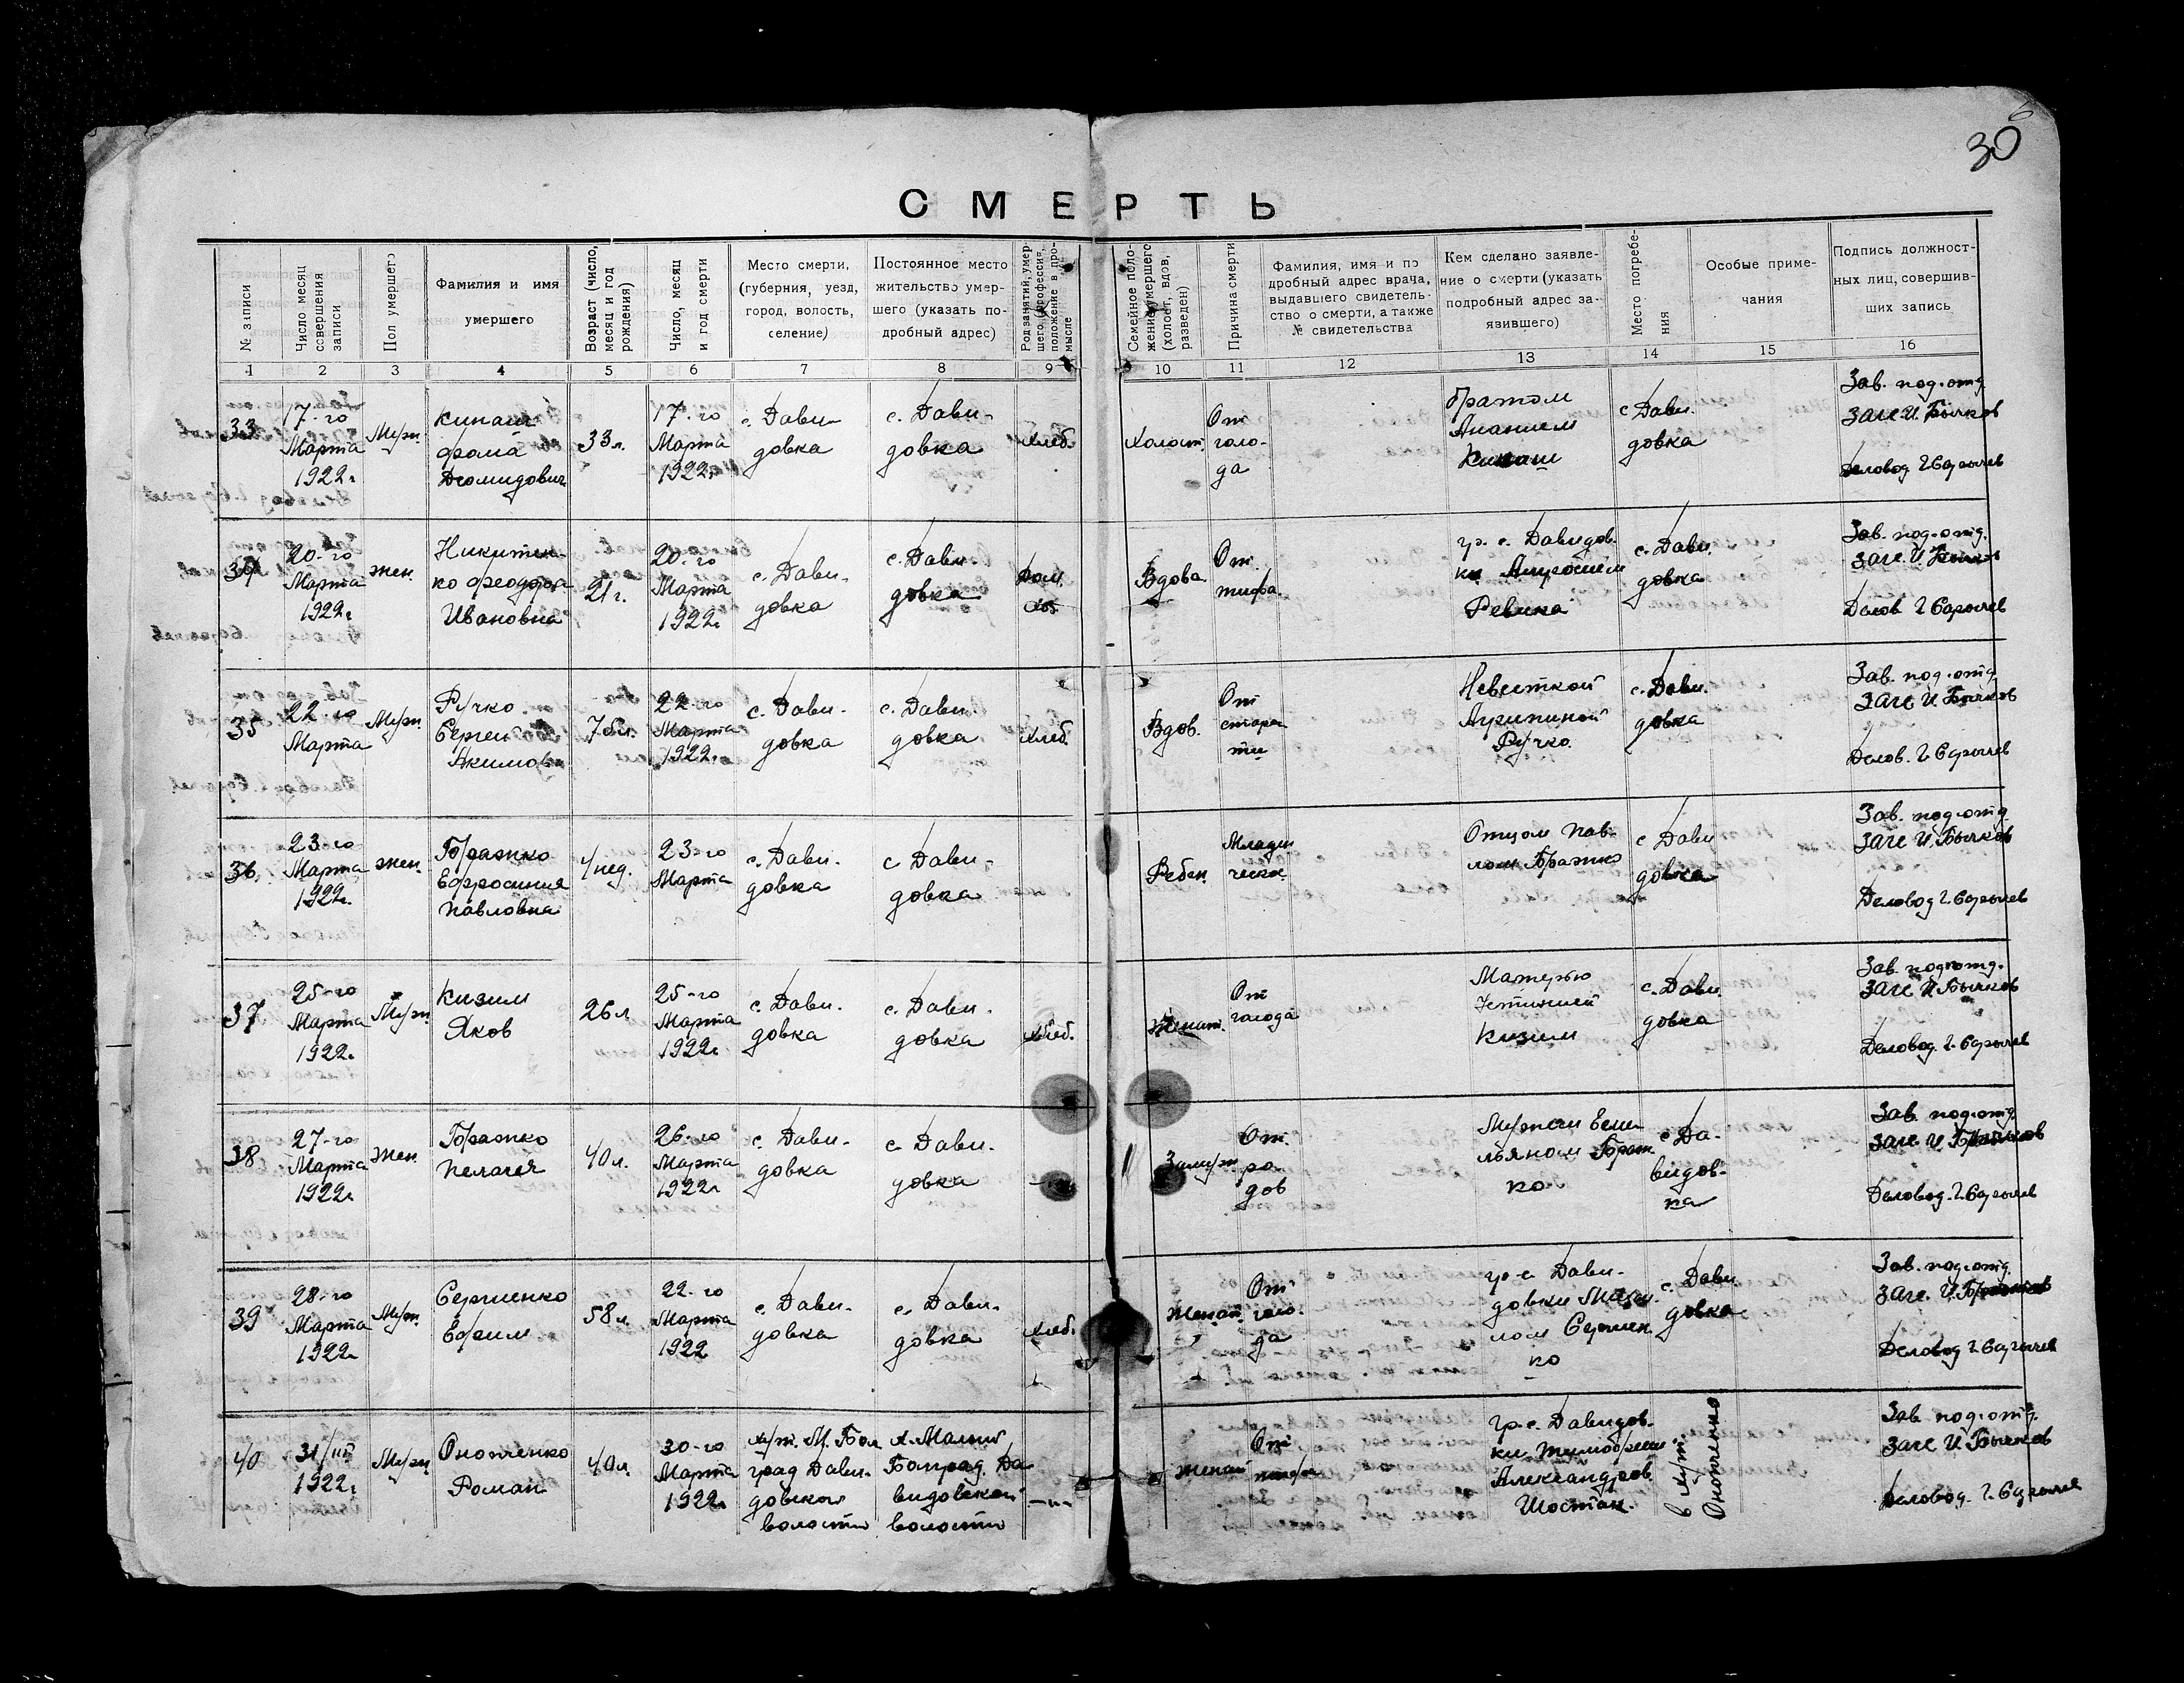 30
СМЕРТЬ
№ записи
Число месяц
совершения
записи
Пол умершего
Фамилия и имя
умершего
Возраст (число,
месяц и год
рождения)
Число, месяц
и год смерти
Место смерти,
(губерния, уезд,
город, волость,
селение)
Постоянное место
жительство умер-
шего (указать по-
дробный адрес)
Род занятий, умер-
шего (профессия,
положение в про-
мысле
Семейное поло-
жение умершего
(холост, вдов,
разведен)
Причина смерти
Фамилия, имя и по
дробный адрес врача,
выдавшего свидетель-
ство о смерти, а также
№ свидетельства
Кем сделано заявле-
ние о смерти (указать
подробный адрес за-
явившего)
Место погребе-
ния
Особые приме-
чания
Подпись должност-
ных лиц, совершив-
ших запись
1 2 3 4 5 6 7 8 9 10 11 12 13 14 15 16
33
17-го
Марта
1922г
Муж.
Кипаш
Фома
Диомидович
33л.
17-го
Марта
1922г
с. Дави-
довка
с. Дави-
довка
Хлеб.
Холост.
От
голо-
да
Братом
Ананием
Кипаш
с Дави.
довка
Зав. под.отд.
ЗАГС И. Бычков
Деловод
34
20-го
Марта
1922г
жен.
Никитен-
ко Феодора
Ивановна
21г.
20-го
Марта
1922г
с. Дави-
довка
с. Дави-
довка
Дом.
хоз.
Вдова
От
тифа.
гр. с. Давидов-
ки
Ревика
с. Дави.
довка
Зав. под.отд.
ЗАГС. И. Бычков
Делов
35
22-го
Марта
Муж.
Ручко
Сергей
Акимов
22-го
Марта
1922г
с. Дави-
довка
с. Дави
довка
Хлеб.
Вдов.
От
старос
ти
Невесткой
Агрипиной
Ручко.
с. Дави.
довка
Зав. под.отд
ЗАГС И. Бычков
Делов.
36
23-го
Марта
1922г.
жен.
Бражко
Ефросиния
Павловна
4 нед.
23-го
Марта
с. Дави-
довка
с Дави-
довка
Ребен.
Младен
ческ.
Отцом Пав-
лом Бражко
с Дави
довка
Зав. под.отд
ЗАГС И. Бычков
Деловод
37
25-го
Марта
1922г.
Муж.
Кизим
Яков
26л
25-го
Марта
1922г
с. Дави-
довка
с. Дави-
довка
Хлеб.
Женат.
От
голода
Матерью
Устинией
Кизим
с. Дави.
довка
Зав. под.отд.
ЗАГС И. Бычков
Деловод.
38
27-го
Марта
1922г
жен.
Бражко
Пелагея
40л.
26-го
Марта
1922г
с. Дави-
довка
с Дави-
довка
Замуж.
От.
ро-
дов
Мужем Емел-
льяном Браж
ко
с Да-
видов-
ка
Зав. под.отд
ЗАГС И. Бычков
Деловод.
39
28-го
Марта
1922г
Муж.
Сергиенко
Ефим
58л
22-го
Марта
1922
с. Дави-
довка
с. Дави-
довка
Хлеб.
Женат.
От
голо-
да
гр-с. Дави-
довки
лом Сергиен.
ко
с. Дави
довка
Зав. под.отд.
ЗАГС. И. Бычков
Деловод
40
31/III
1922г
Муж.
Онопченко
Роман
40л.
30-го
Марта
1922г
хут. М. Бол
град Дави-
довской
волости
х. Малый
Болград. Да
видовской
волости
—"—
Женат
От
тифа
гр-с. Давидов-
ки. Тимофеем
Александров.
Шостак.
в хут.
Онопченко
Зав. под.отд.
ЗАГС И. Бычков
Деловод.